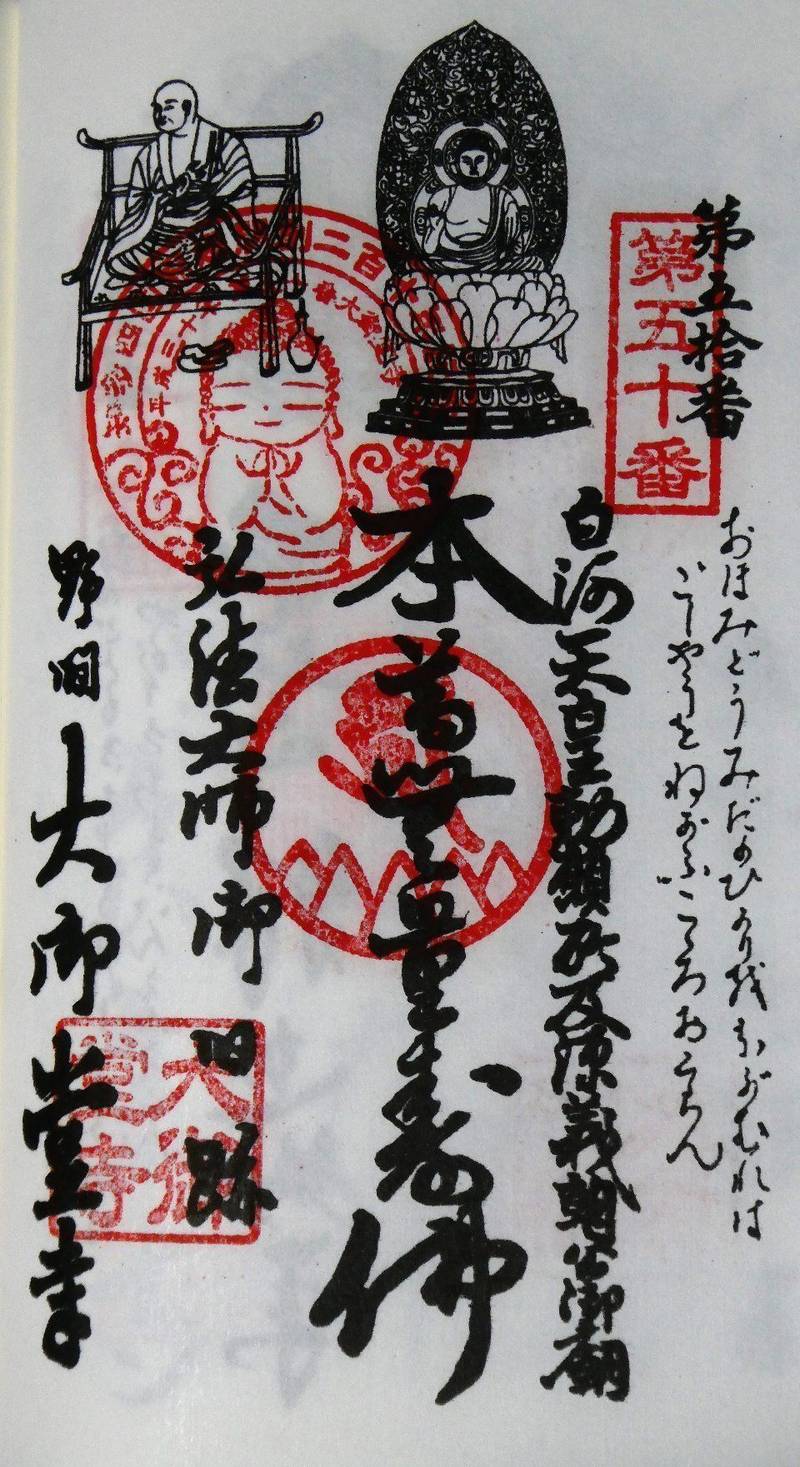 第五拾番
第五十番
おほみどうみだのひかり越をがむれは
ごしやうをねがふこころおこらん
白河天皇勅願所及源義朝公御廟
本尊無量壽佛
弘法大師御旧跡
野間大御堂寺
大御堂寺